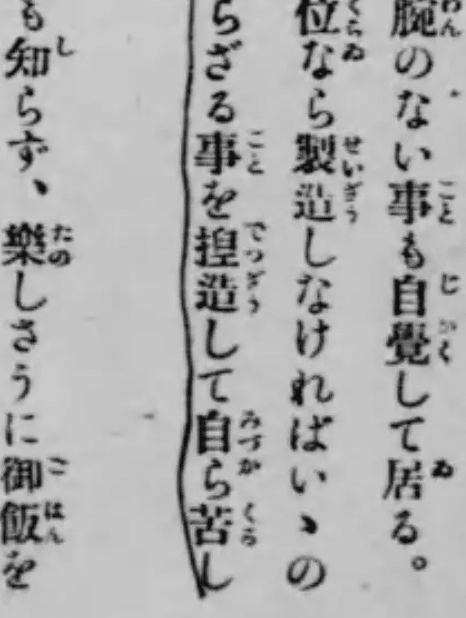 腕のない事も自覺して居る。
位なら製造しなければいゝの
らざる事を捏造して自ら苦し
も知らず、樂しさうに御飯を